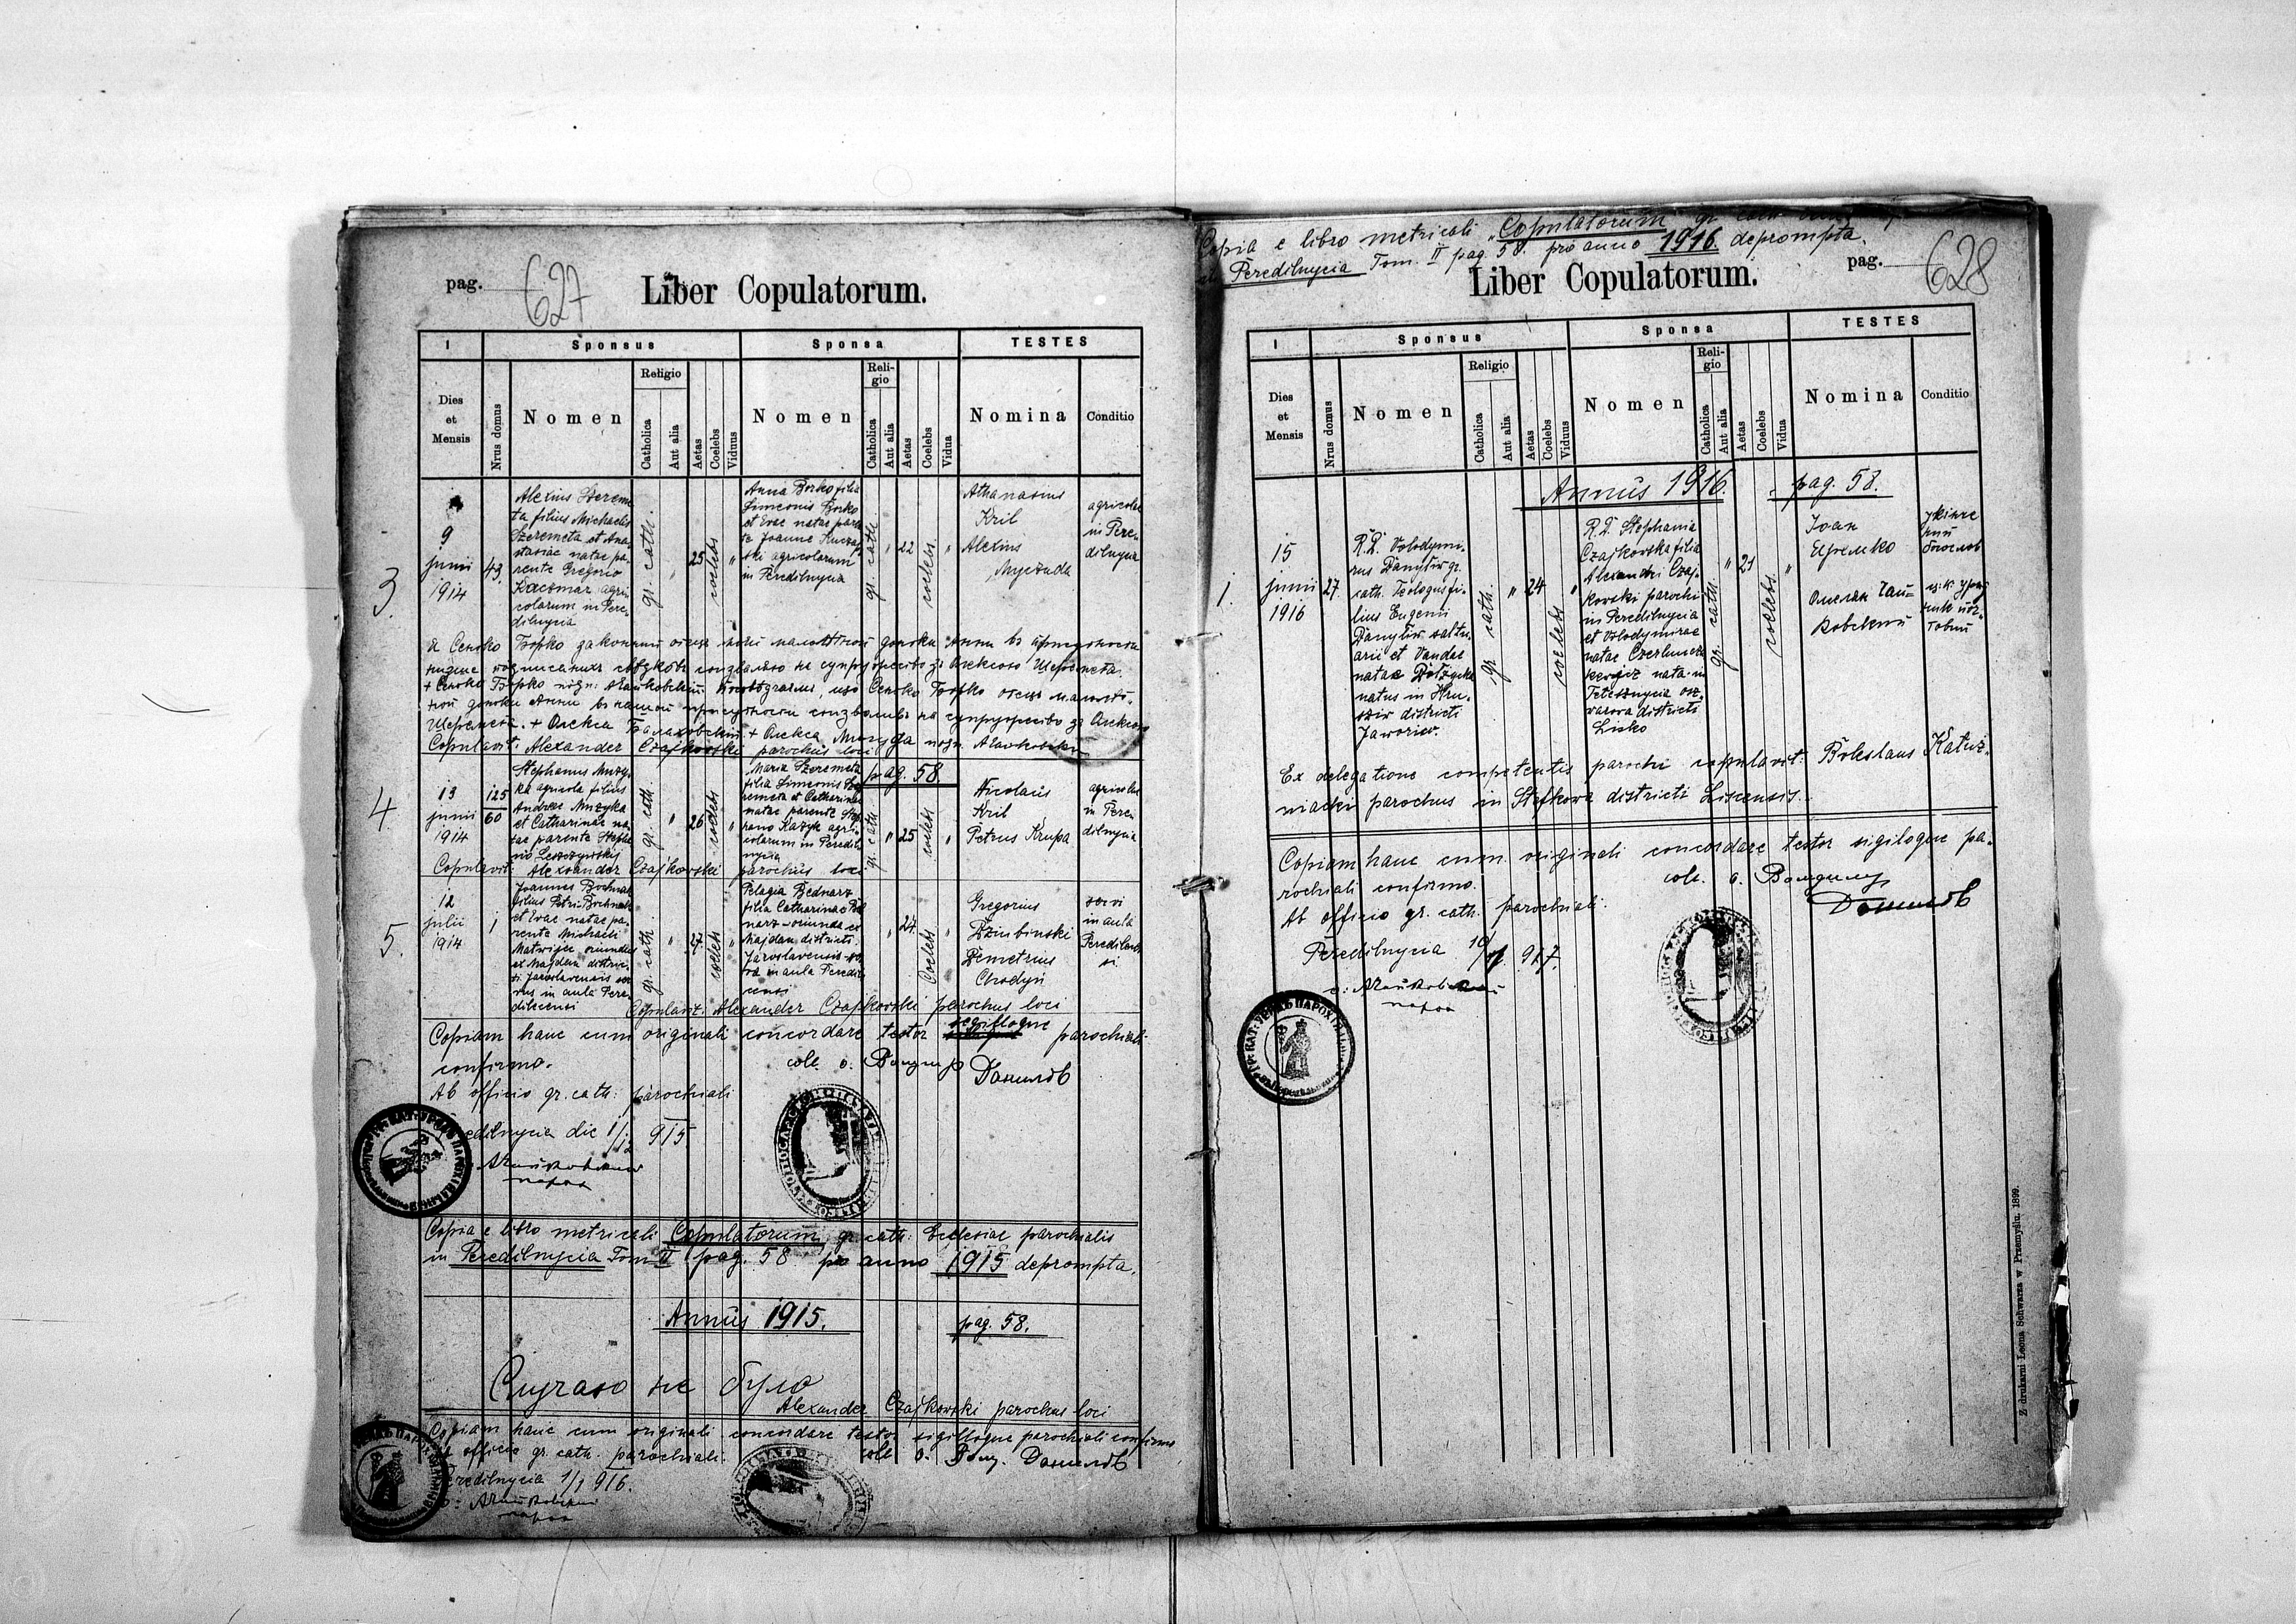 pag. 627
Liber Copulatorum.
I
Sponsus
Sponsa
TESTES
Dies
et
Mensis
Nrus domus
Nomen
Religio
Catholica
Aut alia
Aetas
Coelebs
Viduus
Nomen
Reli-
gio
Catholica
Aut alia
Aetas
Coelebs
Vidua
Nomina
Conditio
3.
9
junii
1914
43.
Alexius Szereme
ta filius Michaelis
Szeremeta et Ana
stasiae natae pa-
rente Gregorio
Kaczmar agri
colarum in Pere
dilnycia
gr. cath.
"
25
coelebs
"
Anna Borko filia
Simeonis Borko
et Evae natae paren
te Joanne
ski agricolarum
in Peredilnycia
gr. cath.
"
22
coelebs
"
Athanasius
Kril
Alexius
Myczuda
agricolae
in Pere-
dilnycia
Copulavit: Alexander Czajkowski parochus loci
pag. 58
4.
13
junii
1914
125
60
Stephanus Muzy
ka agricola filius
Andreae Muzyka
et Catharinae na
tae parente Stepha
no Leszczynskij
gr. cath.
"
26
coelebs
"
Maria Szeremeta
filia Simeonis Sze
remeta et Catharinae
natae parente Step
hano Kazyk agri
colarum in Peredil
nycia
gr. cath
"
25
coelebs
"
Nicolaus
Kril
Petrus Krupa
agricolae
in Pere
dilnycia
Copulavit: Alexander Czajkowski parochus loci
5.
12
julii
1914
1
Joannes Bochnak
filius Petri Bochnak
et Evae natae pa
rente Michaeli
Matwijec oriundus
ex Majdan distric-
ti Jaroslavensis ser
vus in aula Pere
dilecensi
gr. cath
"
27
coelebs
"
Pelagia Bednarz
filia Catharinae Bed
narz oriunda ex
Majdan districti
Jaroslavensis ser
va in aula Peredil
censi
"
24
Coelebs
"
Gregorius
Dziubinski
Demetrius
Chodyń
servi
in aula
Peredilecen
si.
Copulavit: Alexander Czajkowski parochus loci
Copiam hanc cum originali concordare testor sigilloque parochiali
confirmo.
coll. o. Володимир Данилѣв
Ab officio gr. cath: parochiali
Peredilnycia die 1/12 915
Copia e libro metricali Copulatorum gr. cath: Ecclesiae parochialis
in Peredilnycia Tom II pag. 58 pro anno 1915 deprompta.
Annus 1915.
pag. 58.
Случаю не було
Alexander Czajkowski parochus loci
Copiam hanc cum originali concordare testor sigilloque parochiali confirmo
Ab officio gr. cath. parochiali.
coll. o. Вол. Данилѣв
Peredilnycia 1/1 916.
Copia e libro metricali "Copulatorum" gr.
in Peredilnycia Tom. II pag. 58. pro anno 1916. deprompta.
Liber Copulatorum.
pag. 628
I
Sponsus
Sponsa
TESTES
Dies
et
Mensis
Nrus domus
Nomen
Religio
Catholica
Aut alia
Aetas
Coelebs
Viduus
Nomen
Reli-
gio
Catholica
Aut alia
Aetas
Coelebs
Vidua
Nomina
Conditio
Annus 1916.
pag. 58.
1.
15
junii
1916
27
R.D. Volodymi-
rus Danyliw gr.
cath. Teologus fi-
lius Eugenii
Danyliw saltu-
arii et Vandae
natae
natus in Hru-
sziw districti
Jaworiw.
gr. cath.
"
24
coelebs
"
R.D. Stephania
Czajkowska filia
Alexandri Czaj-
kowski parochi
in Peredilnycia
et Volodymirae
natae
nata in
districti
Lisko
gr. cath.
"
21
coelebs
"
Іоан
Еремко
Омелян Чай-
ковский
Ex delegatione competentis parochi copulavit: Boleslaus Katuz-
niacki parochus in Stefkowa districti Liscensis.
Copiam hanc cum originali concordare testor sigiloque pa-
rochiali confirmo.
coll. o. Володимир
Данилѣв
Ab officio gr. cath. parochiali.
Peredilnycia 10/1 917.
Z drukarni Leona Schwarza w Przemyślu. 1899.